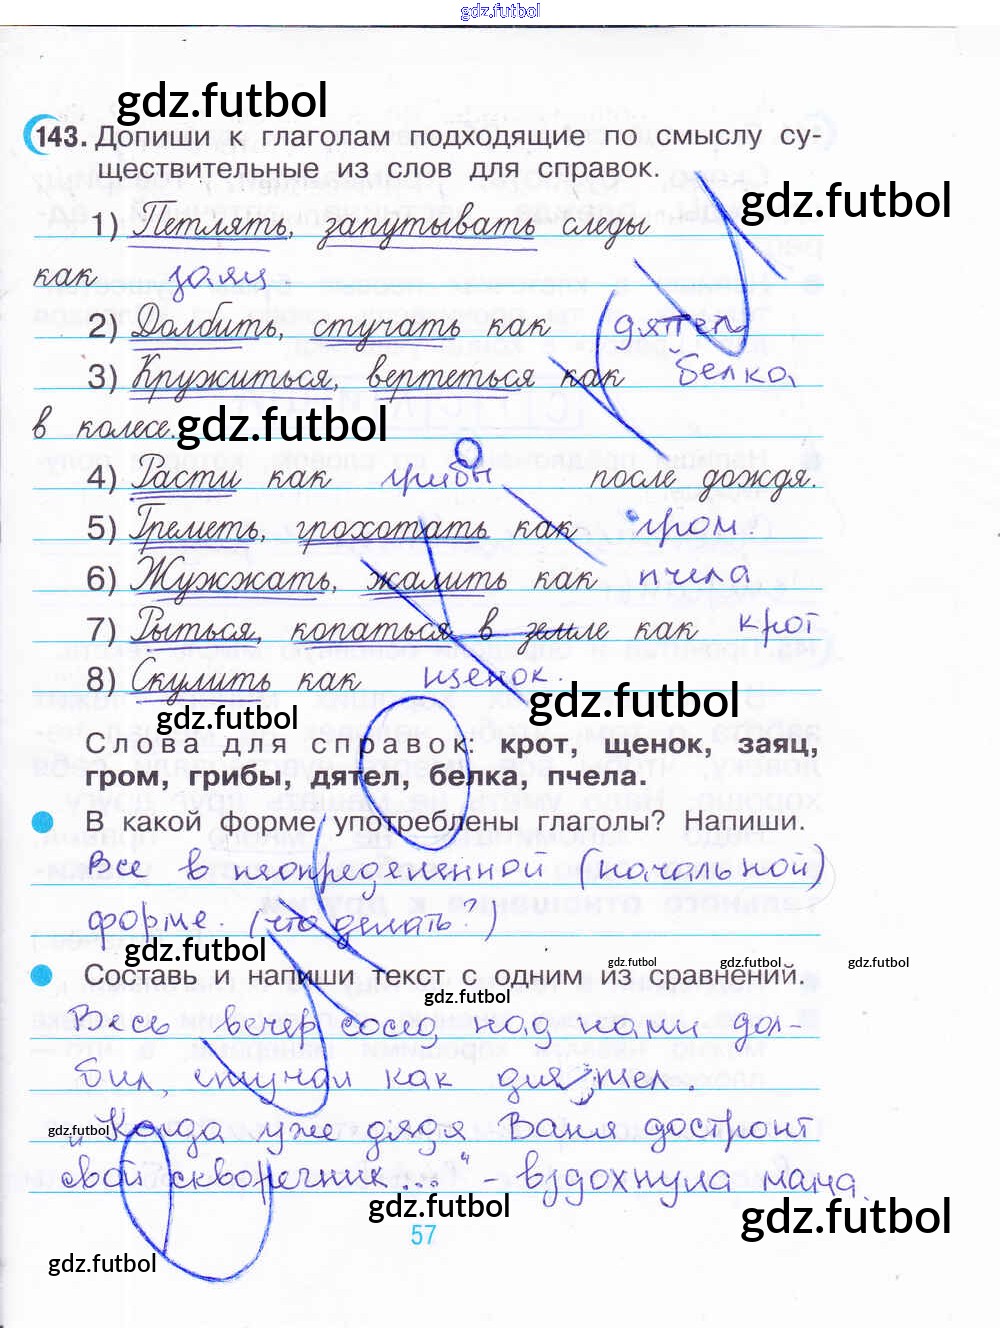 gdz.futbol
gdz.futbol
143. Допиши к глаголам подходящие по смыслу су-
ществительные из слов для справок.
gdz.futbol
1) Петлять, запутывать следы
как заяц
2) Долбить, стучать как дятел
3) Кружиться, вертеться как белка
в колесе.
gdz.futbol
4) Расти как грибы после дождя.
5) Греметь, грохотать как гром.
6) Жужжать, жалить как пчела
7) Рыться, копаться в земле как крот
8) Скулить как щенок.
gdz.futbol
gdz.futbol
Слова для справок: крот, щенок, заяц,
гром, грибы, дятел, белка, пчела.
В какой форме употреблены глаголы? Напиши.
Все в неопределенной (начальной)
форме. (что делать?)
gdz.futbol
gdz.futbol
gdz.futbol
Составь и напиши текст с одним из сравнений.
gdz.futbol
Весь вечер сосед над нами дол-
бил, стучал как дятел.
gdz.futbol
„Когда уже дядя Ваня достроит
свой скворечник...." - вздохнула мама.
gdz.futbol
gdz.futbol
57
gdz.futbol